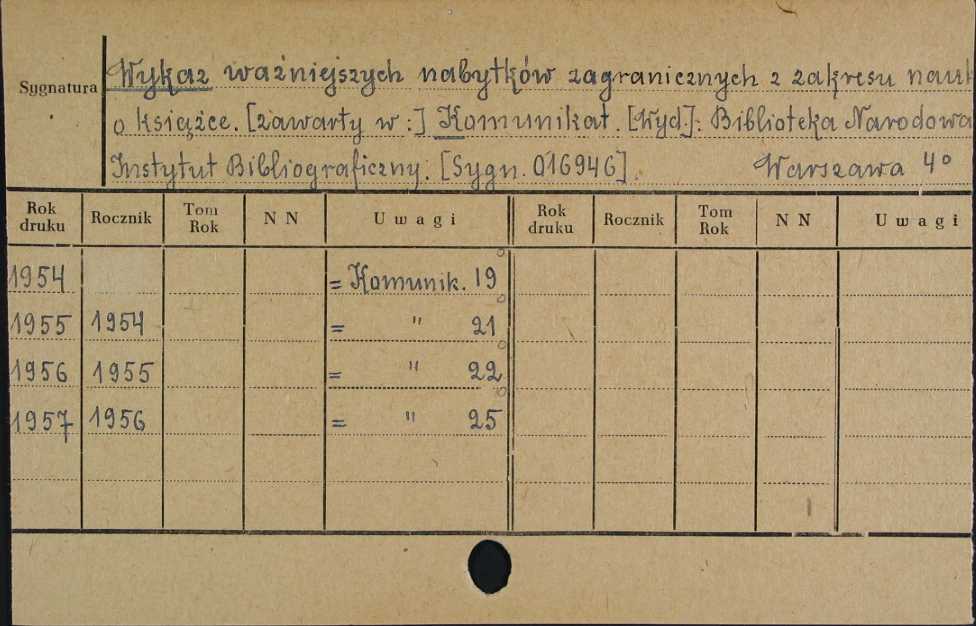 Sygnatura
Wykaz ważniejszych nabytków zagranicznych z zakresu nauk
o książce. [zawarty w:] Komunikat. [Wyd.]: Biblioteka Narodowa
Instytut Bibliograficzny. [Sygn. 016946]. Warszawa 4°
Rok druku Rocznik Tom Rok N N Uwagi Rok druku Rocznik Tom Rok N N Uwagi
1954 = Komunik. 19
1955 1954 = " 21
1956 1955 = " 22
1957 1956 = " 25